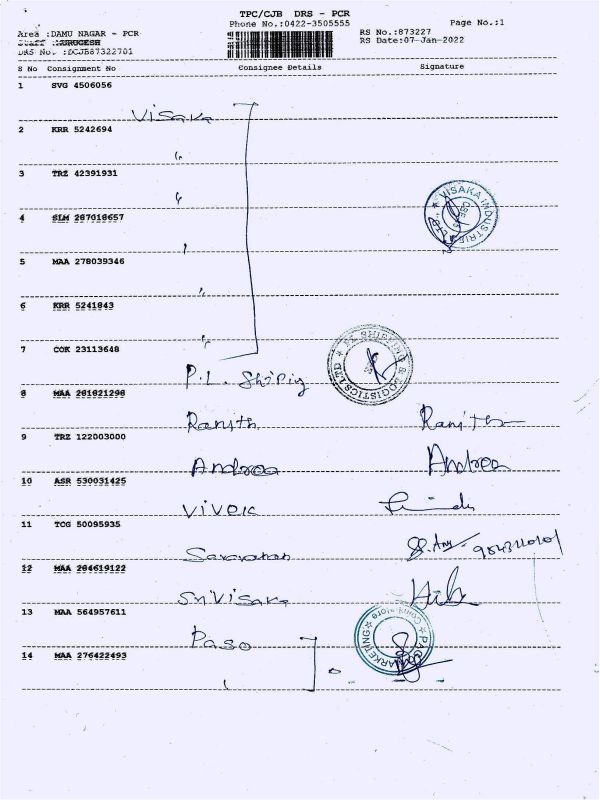 TPC/CJB DRS - PCR
Phone No.:0422-3505555
Page No.:1
Area :DAMU NAGAR - PCR
RS No.:873227
Staff :MURUGESH
RS Date:07-Jan-2022
DRS No. :DCJB87322701
S No Consignment No Consignee Details Signature
1 SVG 4506056
Visaka
2 KRR 5242694
"
3 TRZ 42391931
"
VISAKA INDUSTRIES LTD.,
4 SLM 287018657
"
5 MAA 278039346
"
6 KRR 5241843
"
7 COK 23113648
P.L. Shipig
PL SHIPPING & LOGISTICS LTD
8 MAA 281821298
Ranjith Ranjith
9 TRZ 122003000
Andrea Andrea
10 ASR 530031425
VIVOIC
11 TCG 50095935
Saravanan
12 MAA 284619122
Sri Visaka
13 MAA 564957611
Paso
MARKETING
14 MAA 276422493
"